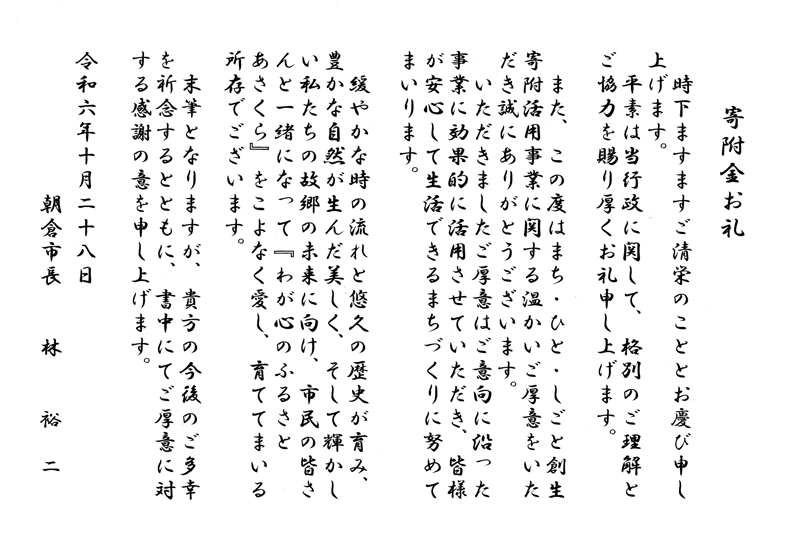 寄附金お礼
時下ますますご清栄のこととお慶び申し
上げます。
平素は当行政に関して、格別のご理解と
ご協力を賜り厚くお礼申し上げます。
また、この度はまち・ひと・しごと創生
寄附活用事業に関する温かいご厚意をいた
だき誠にありがとうございます。
いただきましたご厚意はご意向に沿った
事業に効果的に活用させていただき、皆様
が安心して生活できるまちづくりに努めて
まいります。
緩やかな時の流れと悠久の歴史が育み、
豊かな自然が生んだ美しく、そして輝かし
い私たちの故郷の未来に向け、市民の皆さ
んと一緒になって『わが心のふるさと
あさくら』をこよなく愛し、育ててまいる
所存でございます。
末筆となりますが、貴方の今後のご多幸
を祈念するとともに、書中にてご厚意に対
する感謝の意を申し上げます。
令和六年十月二十八日
朝倉市長 林 裕二